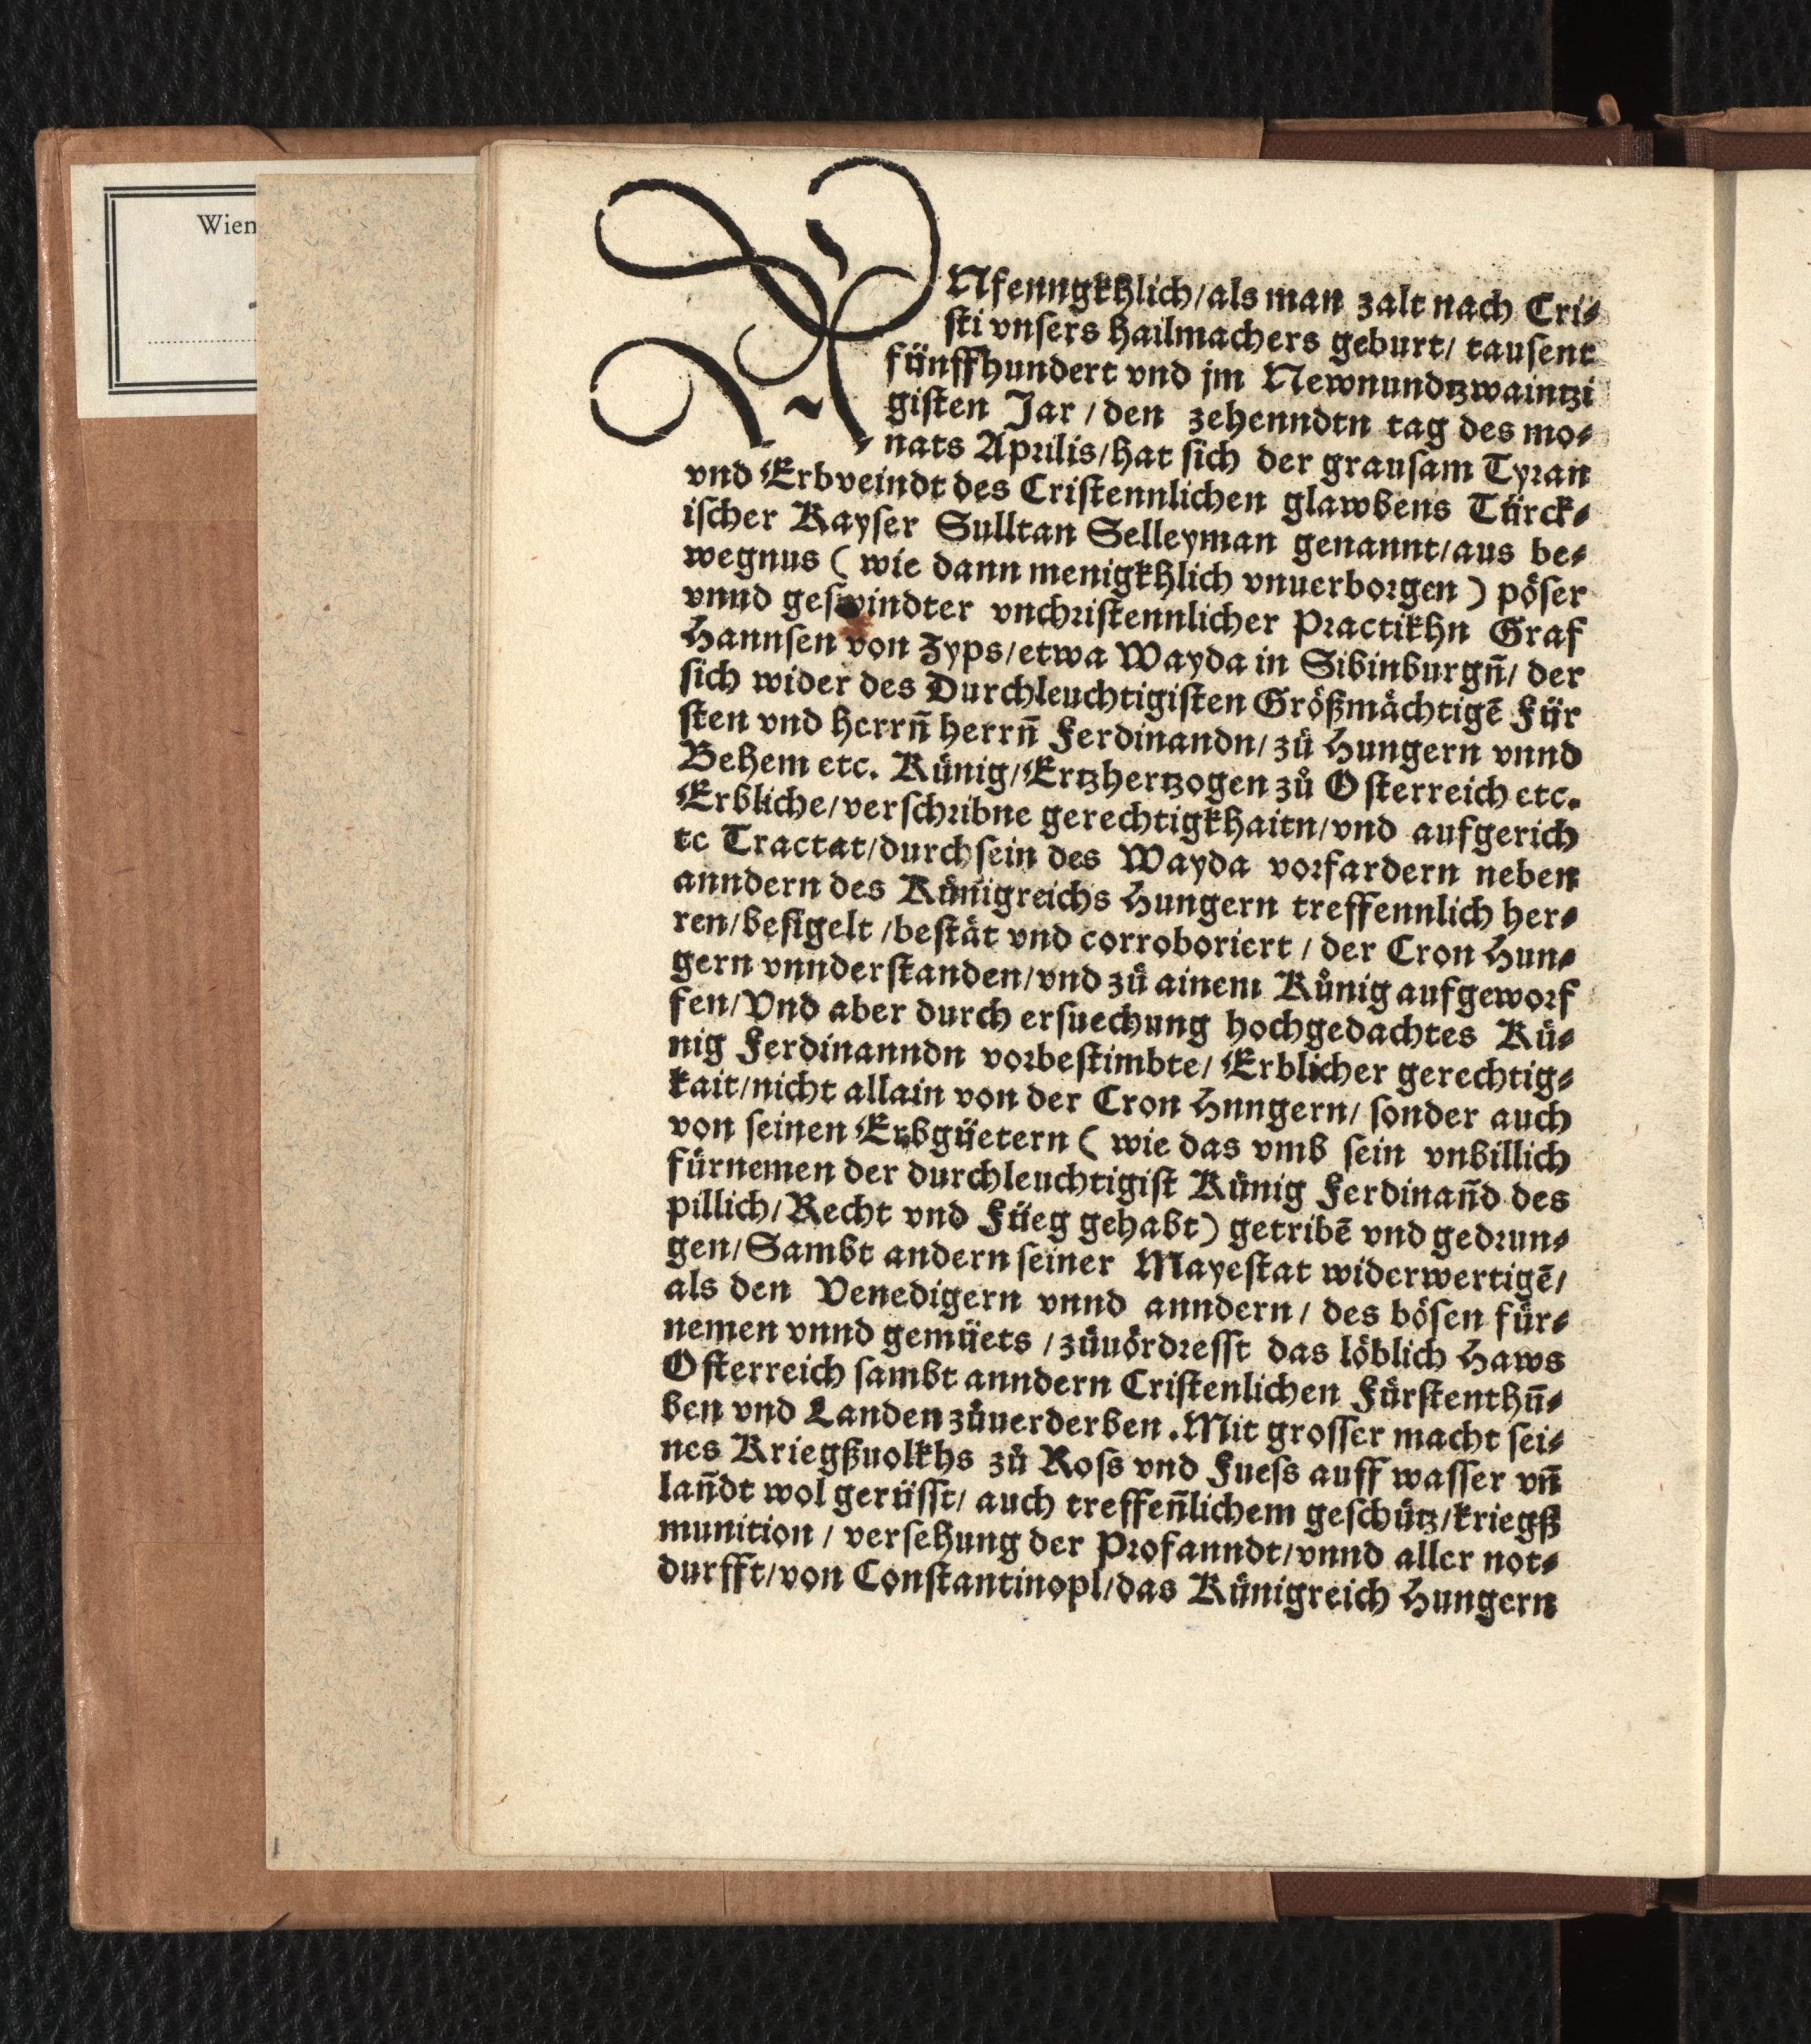 Wien
ANfenngkhlich/als man zalt nach Cri⸗
sti vnsers hailmachers geburt/ tausent
fünffhundert vnd jm Newnundtzwaintzi
gisten Jar/den zehenndtn tag des mo⸗
nats Aprilis/hat sich der grausam Tyran
vnd Erbveindt des Cristennlichen glawbens Türck⸗
ischer Kayser Sulltan Selleyman genannt/aus be⸗
wegnus (wie dann menigkhlich vnuerborgen) pöser
vnnd geswindter vnchristennlicher Practikhn Graf
Hannsen von Zyps/etwa Wayda in Sibinburgn̄/ der
sich wider des Durchleuchtigisten Größmächtigē Für
sten vnd herrn̄ herrn̄ Ferdinandn/ zů Hungern vnnd
Behem etc. Künig/Ertzhertzogen zů Osterreich etc.
Erbliche/verschribne gerechtigkhaitn/vnd aufgerich
te Tractat/durch sein des Wayda vorfardern neben
anndern des Künigreichs Hungern treffennlich her⸗
ren/besigelt/bestät vnd corroboriert/ der Cron Hun⸗
gern vnnderstanden/vnd zů ainem Künig aufgeworf
fen/Vnd aber durch ersuechung hochgedachtes Kü⸗
nig Ferdinanndn vorbestimbte/ Erblicher gerechtig⸗
kait/nicht allain von der Cron Hnngern/ sonder auch
von seinen Erbgüetern (wie das vmb sein vnbillich
fürnemen der durchleuchtigist Künig Ferdinan̄d des
pillich/Recht vnd Füeg gehabt) getribē vnd gedrun⸗
gen/Sambt andern seiner Mayestat widerwertigē/
als den Venedigern vnnd anndern/ des bösen für⸗
nemen vnnd gemüets/zůuördresst das löblich Haws
Osterreich sambt anndern Cristenlichen Fürstenthū⸗
ben vnd Landen zůuerderben. Mit grosser macht sei⸗
nes Kriegßuolkhs zů Ross vnd Fuess auff wasser vn̄
lan̄dt wol gerüsst/ auch treffen̄lichem geschütz/kriegß
munition/ versehung der Profanndt/vnnd aller not⸗
durfft/von Constantinopl/das Künigreich Hungern